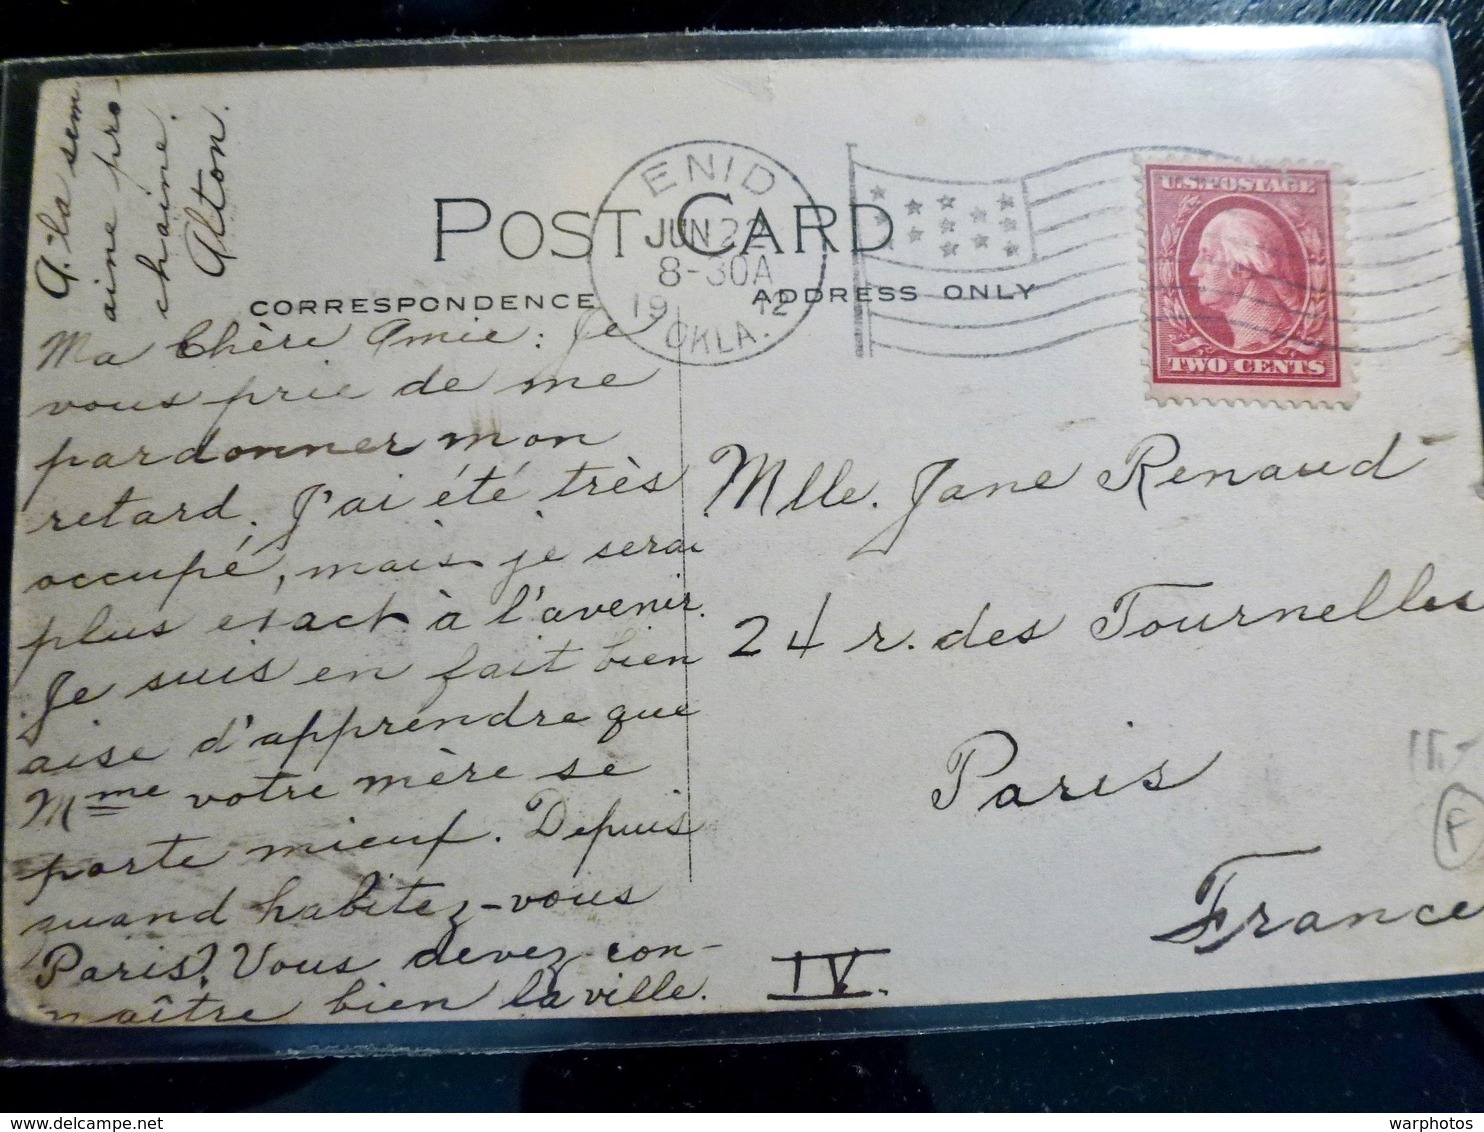 POST CARD
CORRESPONDENCE
ADDRESS ONLY
ENID
JUN 22
8-30A
1912
OKLA.
U.S. POSTAGE
TWO CENTS
Ma Chère Amie: Je
vous prie de me
pardonner mon
retard. J'ai été très
occupé, mais je serai
plus exact à l'avenir.
Je suis en fait bien
aise d'apprendre que
Mme votre mère se
porte mieux. Depuis
quand habitez-vous
Paris? Vous devez con-
naître bien la ville.
A' la sem
aine pro-
chaine.
Alton.
Mlle. Jane Renaud
24 r. des Tournelles
Paris
France
IV.
F
warphotos